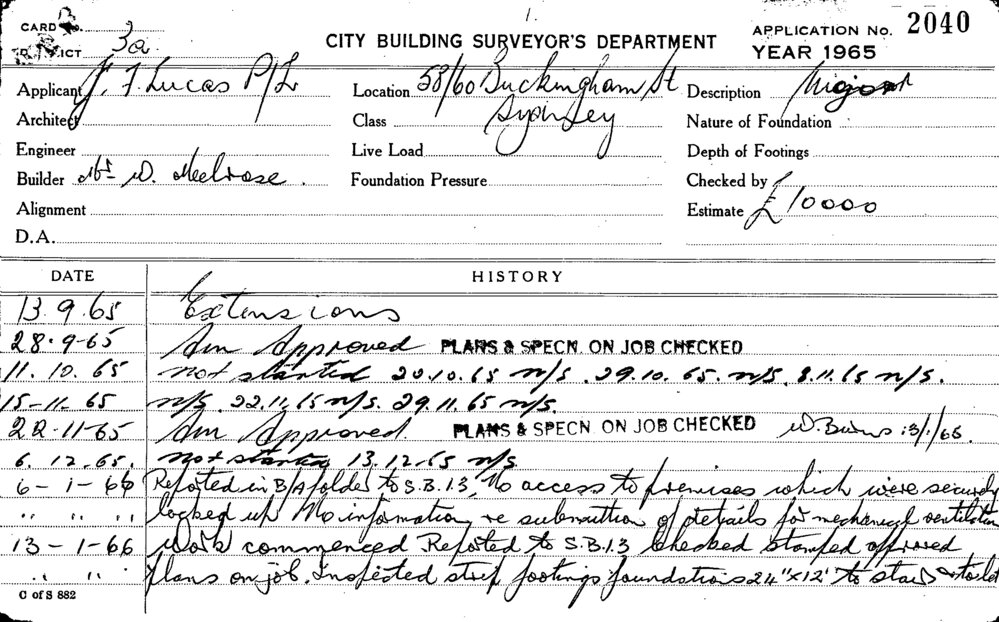 1.
CARD No.
DISTRICT 3a
CITY BUILDING SURVEYOR'S DEPARTMENT
APPLICATION No. 2040
YEAR 1965
Applicant J. F. Lucas P/L
Location 58/60 Buckingham St
Description
Architect
Class Sydney
Nature of Foundation
Engineer
Live Load
Depth of Footings
Builder Mr. D. Melrose.
Foundation Pressure
Checked by
Alignment
Estimate £10000
D.A.
DATE HISTORY
13.9.65 Extensions
28.9.65 Am Approved PLANS & SPECN. ON JOB CHECKED
11.10.65 not started 20.10.65 n/s. 29.10.65. n/s. 8.11.65 n/s.
15-11-65 n/s. 22.11.65 n/s. 29.11.65 n/s.
22-11-65 Am Approved. PLANS & SPECN. ON JOB CHECKED W. Burns 13/1/66
6.12.65. not started 13.12.65 n/s
6-1-66 Reported in B/A folder to S.B.13, No access to premises which were securely
" " " locked up No information re submittion of details for mechanical ventilation
13-1-66 Work commenced Reported to S.B.13 Checked stamped approved
" " " plans on job. Inspected strip footings foundations 24"x12" to stairs & toilet
C of S 882